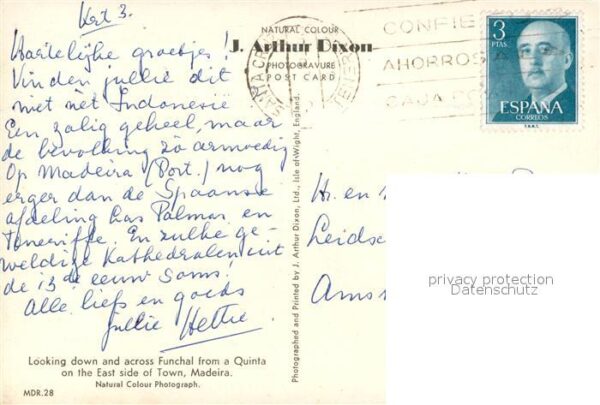 Krt 3.
Hartelijke groetjes!
Vinden jullie dit
niet nèt Indonesië
Een zalig geheel, maar
de bevolking zò armoedig
Op Madeira (Port.) nog
erger dan de Spaanse
afdeling Las Palmas en
Teneriffe. En zulke ge-
weldige Kathedralen uit
de 13de eeuw soms!
Alle liefs en goeds
jullie Hettie
Looking down and across Funchal from a Quinta
on the East side of Town, Madeira.
Natural Colour Photograph.
MDR.28
NATURAL COLOUR
J. Arthur Dixon
PHOTOGRAVURE
POST CARD
Photographed and Printed by J. Arthur Dixon, Ltd., Isle of Wight, England.
CONFIE
AHORROS
CAJA
3
PTAS
ESPAÑA
CORREOS
Hr. en
Leidse
Ams
privacy protection
Datenschutz